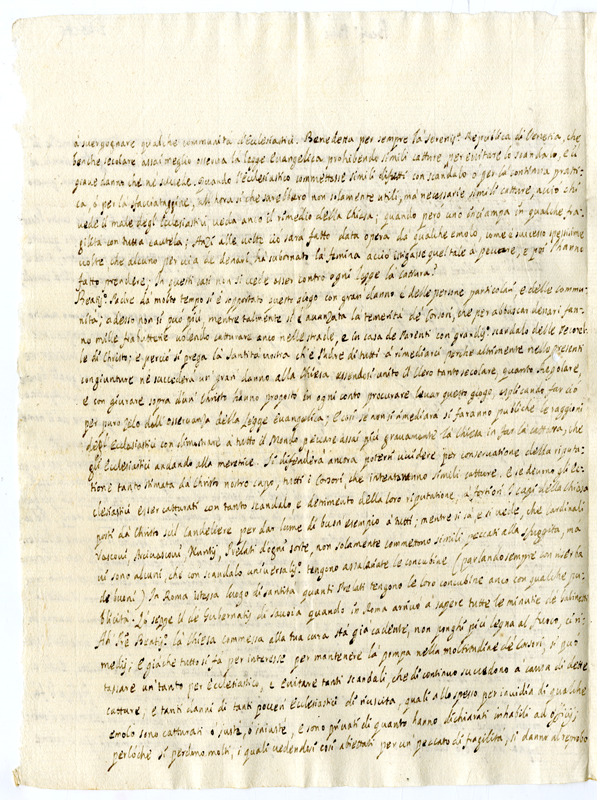 à suergognare qualche communità d'Ecclesiastici. Benedetta per sempre la Sereniss.ª Republica di Venetia, che
benche secolare assai meglio osserua la legge Euangelica prohibendo simili catture per euitare lo scandalo, e il
graue danno che ne succede. Quando l'Ecclesiastico commettesse simili difetti con scandalo ò per la continua prati-
ca, ò per la sfacciataggine, all'hora si che sarebbero non solamente utili, mà necessarie simili catture, acciò chi
uede il male degl'Ecclesiastici, ueda anco il rimedio della Chiesa; quando però uno inciampa in qualche fra-
gilità con tutta cautela; Anzi alle uolte ciò sarà fatto data opera da qualche emolo, come è successo spessissime
uolte che alcuno per uia de denari hà subornato la femina acciò tirasse quel tale à peccare, e poi l'hanno
fatto prendere; In questi casi non si uede esser contro ogni legge la cattura?
Beatiss.º Padre da molto tempo si è sopportato questo giogo con gran danno e delle persone particolari, e delle commu-
nità; adesso non si può più, mentre talmente si è auanzata la temerità de Corsori, che per abbuscar denari fan-
no mille trabuttene uolendo catturare anco nelle strade, e in casa de Parenti con grandiss.º scandalo delle Pecorel-
le di Christo; e perciò si prega la Santità uostra che è Padre di tutti à rimediarci perche altrimente nelle presenti
congiunture ne succederà un gran danno alla Chiesa essendosi unito il Clero tanto secolare, quanto Regolare,
e con giurare sopra d'un Christo hanno proposto in ogni conto procurare leuar questo giogo, esplicando far ciò
per puro zelo dell'osseruanza della Legge Euangelica; E così se non si rimedierà si faranno publiche le raggioni
degl'Ecclesiastici con dimostrare à tutto il Mondo peccare assai più grauamente la Chiesa in far la cattura, che
gli Ecclesiastici andando alla meretrice. Si difenderà ancora potersi uccidere per conseruatione della riputa-
tione tanto stimata da Christo nostro capo, tutti i Corsori, che intenteranno simili catture. E se deuono gli Ec-
clesiastici esser catturati con tanto scandalo e detrimento della loro riputatione, à fortiori i Capi della Chiesa
posti da Christo sul Candeliere per dar lume di buon esempio à tutti; mentre si sà, e si uede, che Cardinali
Vescoui, Arciuescoui, Nuntij, Prelati d'ogni sorte, non solamente commettono simili peccati alla sfuggita, ma
ui sono alcuni, che con scandalo uniuersaliss.º tengono assalariate le concubine (parlando sempre con riserba
de buoni) In Roma istessa luogo di santità quanti Prelati tengono le loro concubine anco con qualche pu-
blicità. Lo seppe il de Gubernatis di Sauoia quando in Roma arriuò à sapere tutte le minutie de Gabinetti
Ah Pre Beatiss.º la Chiesa commessa alla tua cura stà già cadente, non punghi più legna al fuoco, ci ri-
medij; E giache tutto si fà per interesse per mantenere la pompa nella moltitudine de Corsori, si può
tassare un tanto per Ecclesiastico, e euitare tanti scandali, che di continuo succedono à causa di dette
catture, e tanti danni di tanti poueri Ecclesiastici di riuscita, quali allo spesso per inuidia di qualche
emolo sono catturati ò iustè, ò iniustè, e sono priuati di quanto hanno dichiarati inhabili ad officij;
perloche si perdono molti, i quali uedendosi così abiettati per un peccato di fragilità, si danno al reprobo